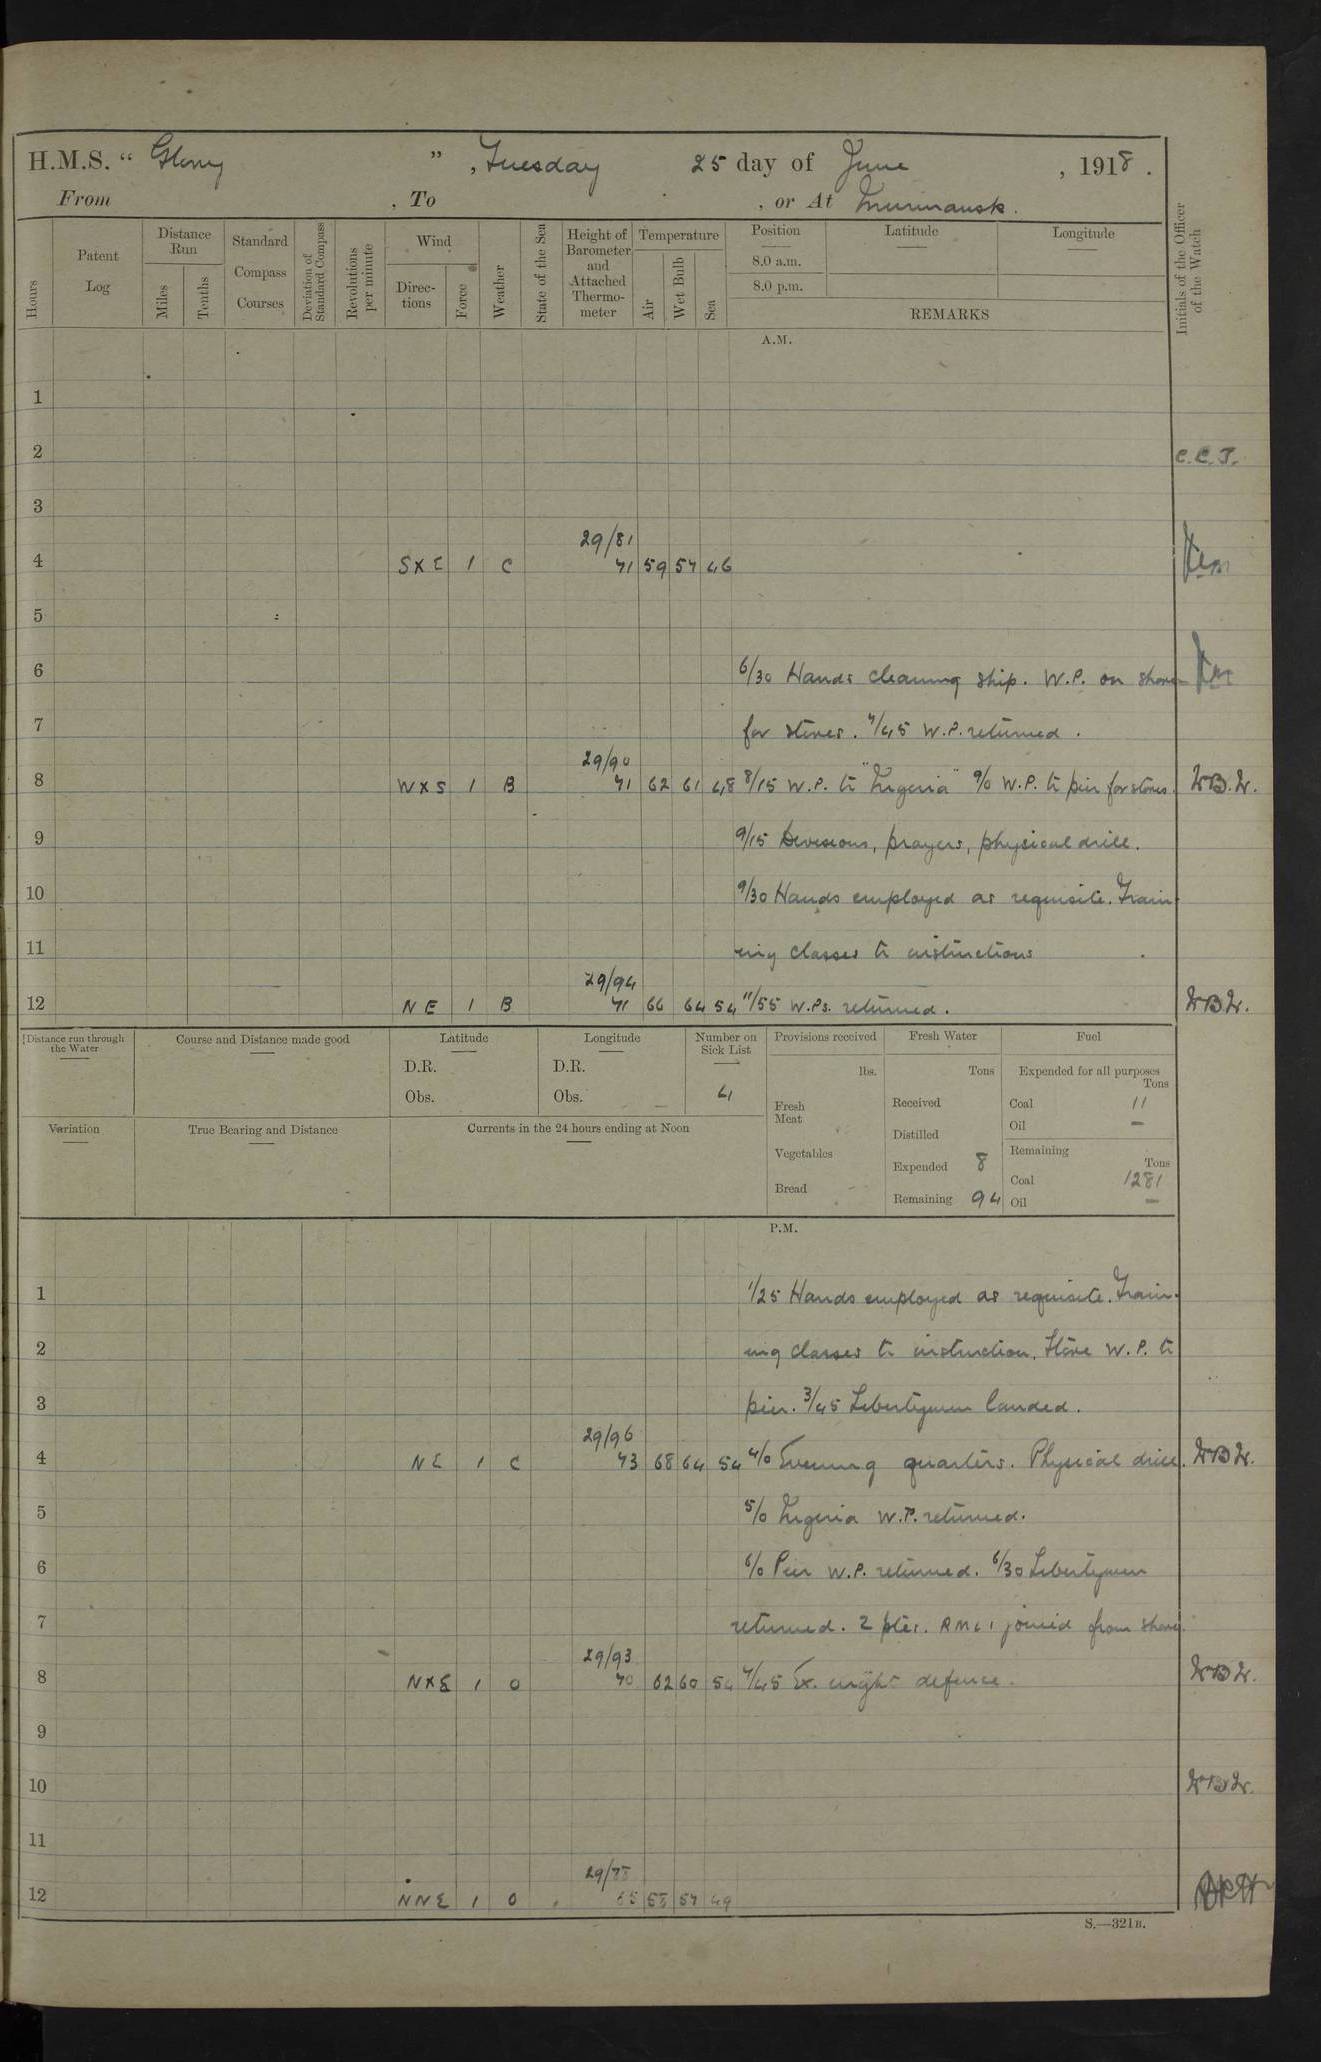 H.M.S. “ Glory ” , Tuesday 25 day of June , 1918 .
From , To , or At Murmansk .
Hours
Patent Log
Distance Run
Miles
Tenths
Standard Compass Courses
Deviation of Standard Compass
Revolutions per minute
Wind
Directions
Force
Weather
State of the Sea
Height of Barometer and Attached Thermometer
Temperature
Air
Wet Bulb
Sea
Position
8.0 a.m.
8.0 p.m.
Latitude
Longitude
REMARKS
Initials of the Officer of the Watch
A.M.
1
2 C.C.J.
3
29/81
4 SXE 1 C 71 59 57 46
5
6 6/30 Hands cleaning ship. W.P. on shore
7 for stores. 7/45 W.P. returned.
29/90
8 WXS 1 B 71 62 61 48 8/15 W.P. to "Nigeria" 9/0 W.P. to pier for stores.
9 9/15 Divisions, prayers, physical drill.
10 9/30 Hands employed as requisite. Train-
11 ing classes to instructions
29/94
12 NE 1 B 71 66 64 54 11/55 W.Ps. returned.
Distance run through the Water
Course and Distance made good
Latitude
D.R.
Obs.
Longitude
D.R.
Obs.
Number on Sick List
41
Provisions received
lbs.
Fresh Meat
Vegetables
Bread
Fresh Water
Tons
Received
Distilled
Expended 8
Remaining 94
Fuel
Expended for all purposes
Tons
Coal 11
Oil —
Remaining
Tons
Coal 1281
Oil —
Variation
True Bearing and Distance
Currents in the 24 hours ending at Noon
P.M.
1 1/25 Hands employed as requisite. Train-
2 ing classes to instruction. Store W.P. to
3 pier. 3/45 Libertymen landed.
29/96
4 NE 1 C 73 68 64 54 4/0 Evening quarters. Physical drill.
5 5/0 Nigeria W.P. returned.
6 6/0 Pier W.P. returned. 6/30 Libertymen
7 returned. 2 ptes. RMLI joined from shore.
29/93
8 NXE 1 O 70 62 60 54 7/45 Ex. night defence.
9
10
11
29/78
12 NNE 1 O 65 58 57 49
S.—321B.